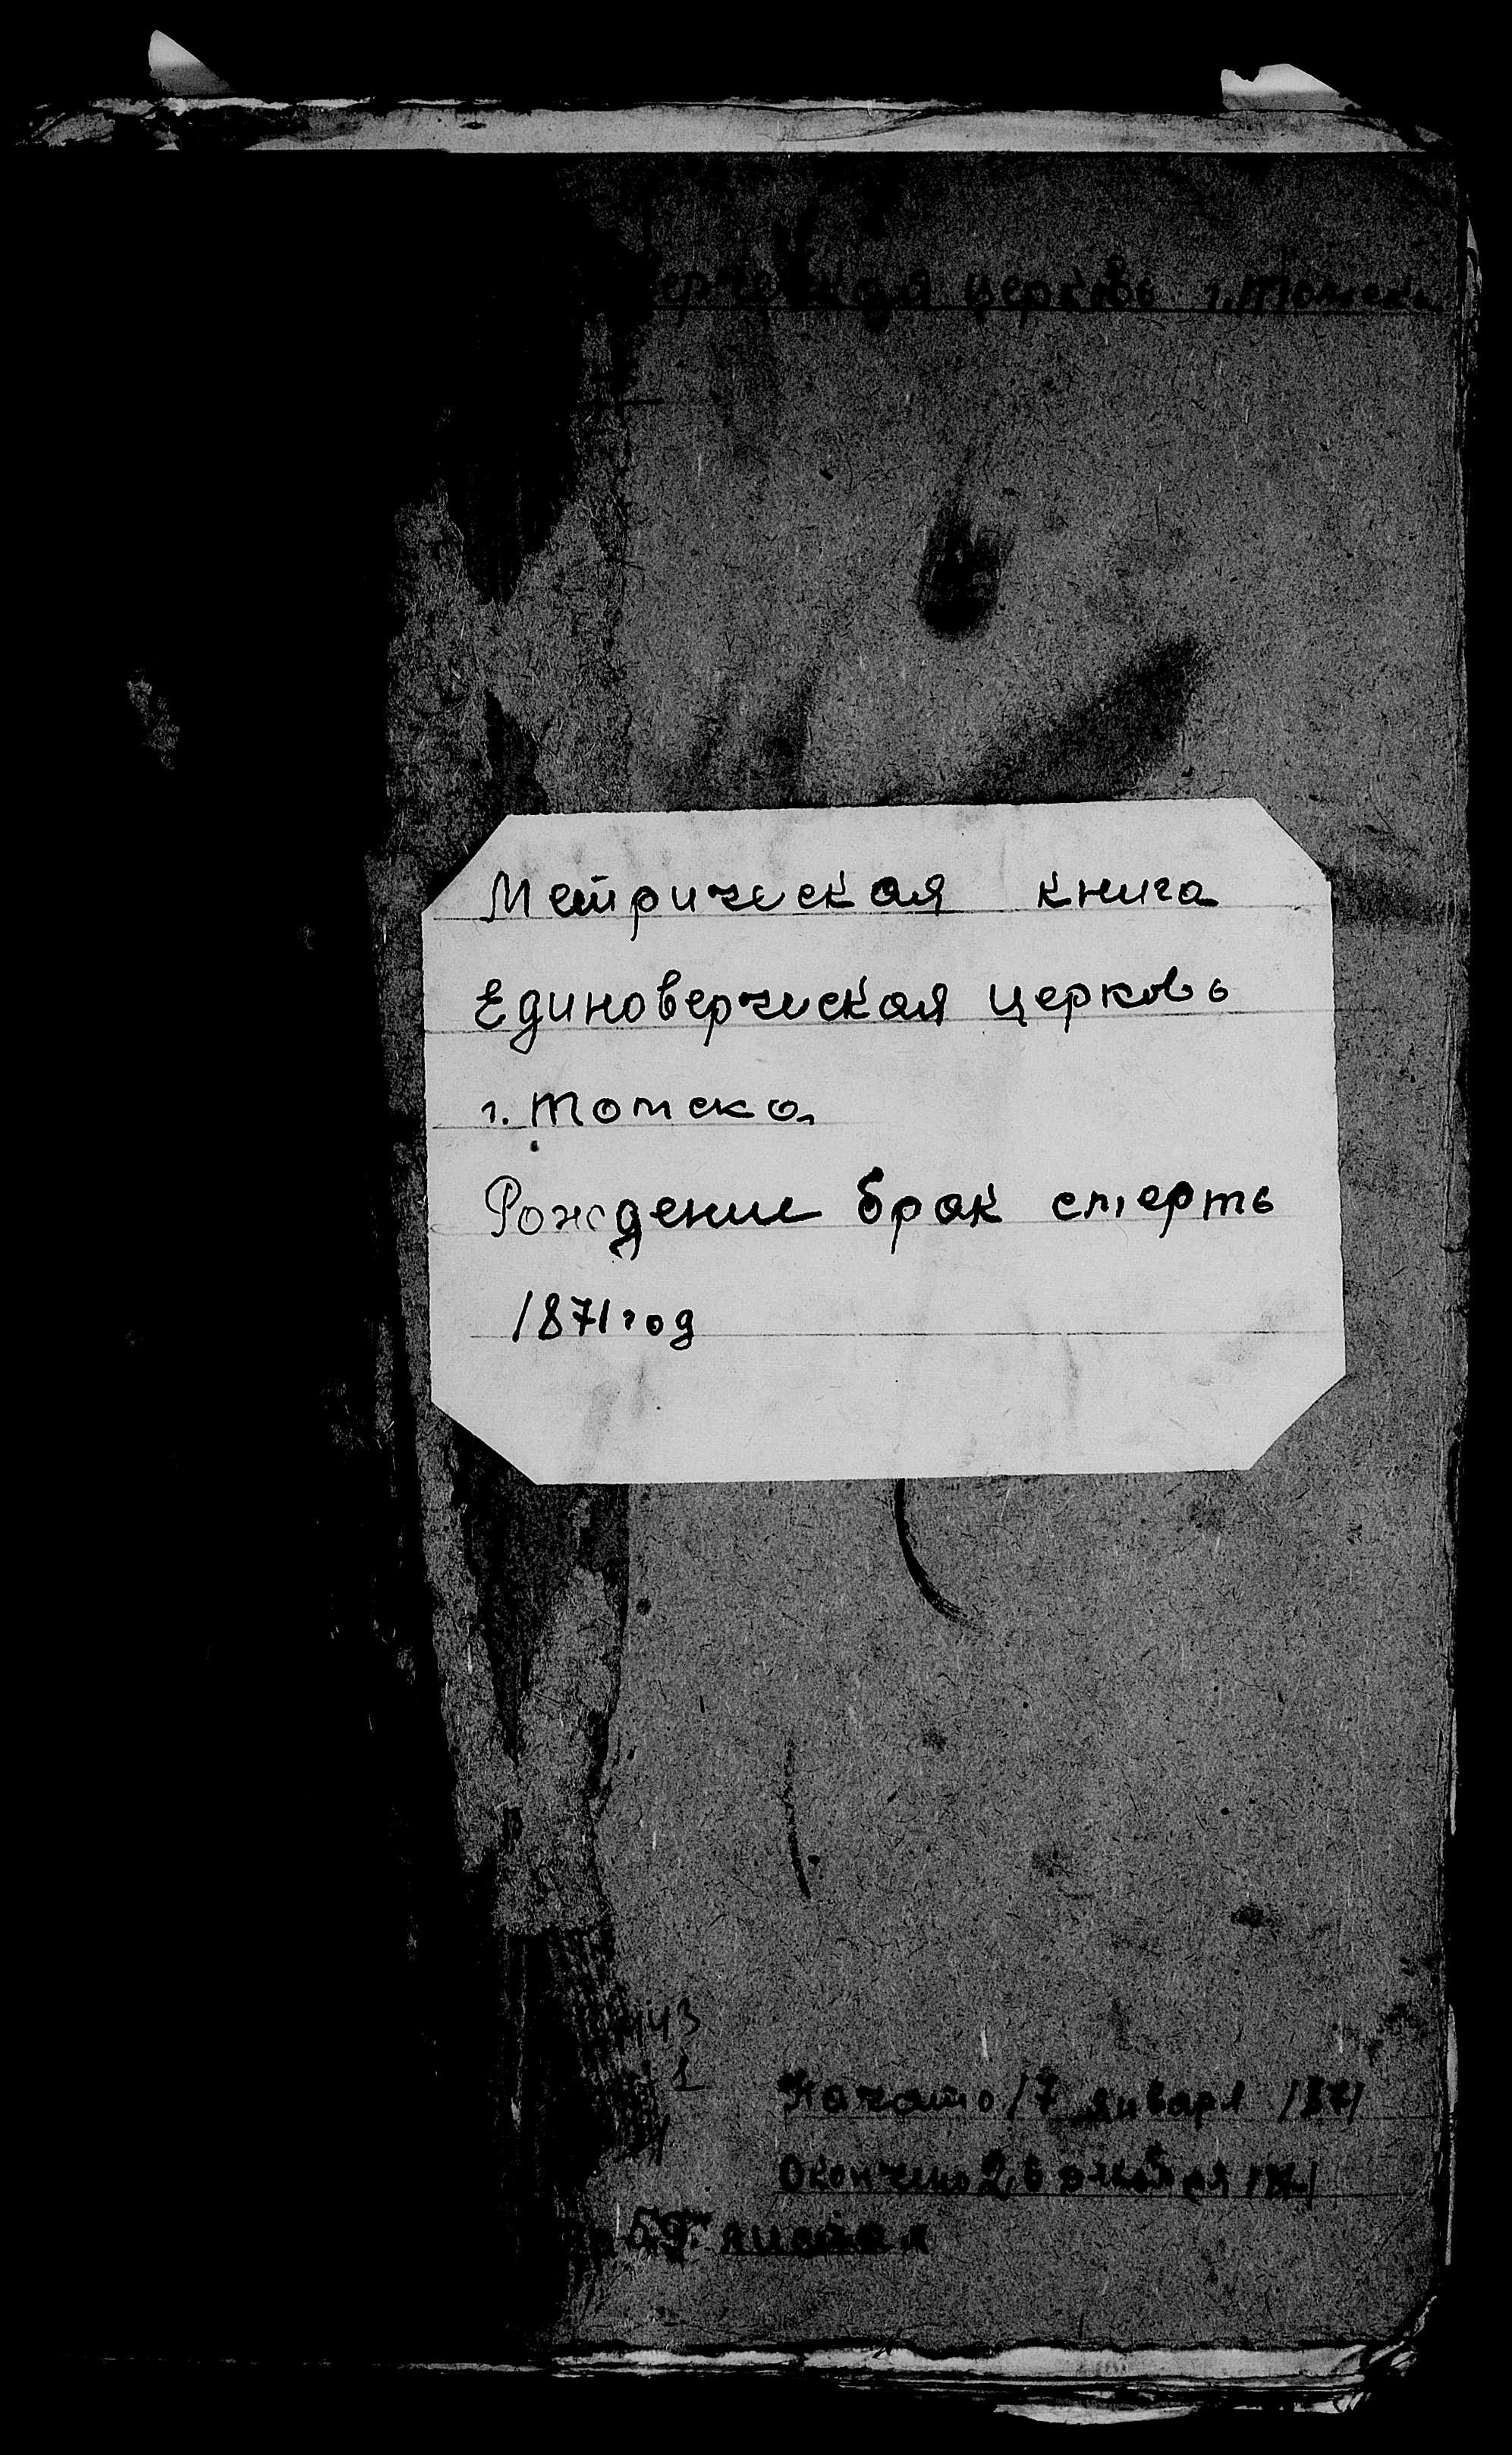 церковь г. Томска
Метрическая книга
Единоверческая церковь
г. Томска
Рождение брак смерть
1871 год
43
1
Начато 17 января 1871
Окончено 26 декабря 1871
59 листах